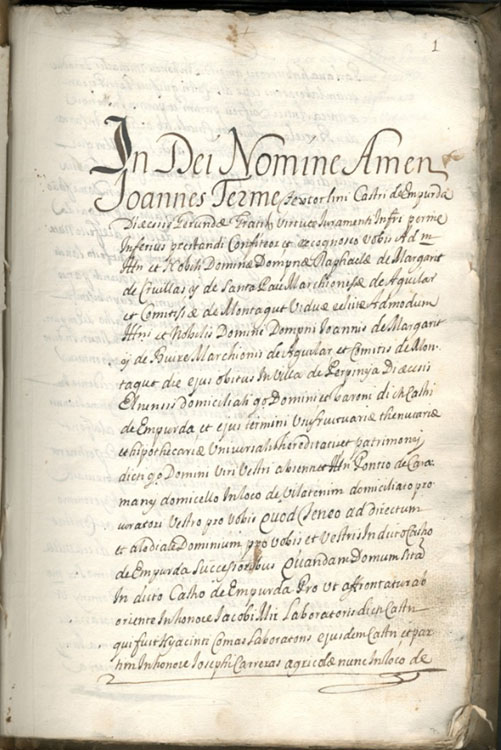 1
In Dei Nomine Amen
Joannes Terme textor lini Castri de Empurda
Diæcesis Gerundæ Gratis Virtute Juramenti Infri per me
Inferius prestandi Confiteor et recognosco vobis Adm
Iltri et Nobili Dominæ Dompnæ Raphaelæ de Margarit
de Cruillas y de Santa Pau Marchionissæ de Aguilar
et Comitissæ de Montagut Viduæ relictæ Admodum
Iltris et Nobilis Domini Dompni Joannis de Margarit
y de Biure Marchionis de Aguilar et Comitis de Mon-
tagut die ejus obitus In Villa de Perpinya Diæcesis
Elnensis domiciliati qo Domini et baroni dicti Casthi
de Empurda, et ejus termini Usufructuariæ thenutariæ
et hipothecariæ Universalis hereditatis et patrimonij
dicti qo Domini Viri Vestri absenti et Hri Pontio de Cara
many domicello In loco de Vilatenim domiciliato pro
curatori Vestro pro vobis Quod Teneo ad directum
et alodiale Dominium pro vobis et Vestris In dicto Castho
de Empurda Successoribus Quandam Domum sitā
In dicto Castho de Empurda Pro Ut affrontatur ab
oriente In honore Jacobi Mir Laboratoris dicti Castri
qui fuit Hyacinti Comas Laboratoris ejusdem Castri, et par
tim In honore Josephi Carreras agricolæ nunc In loco de